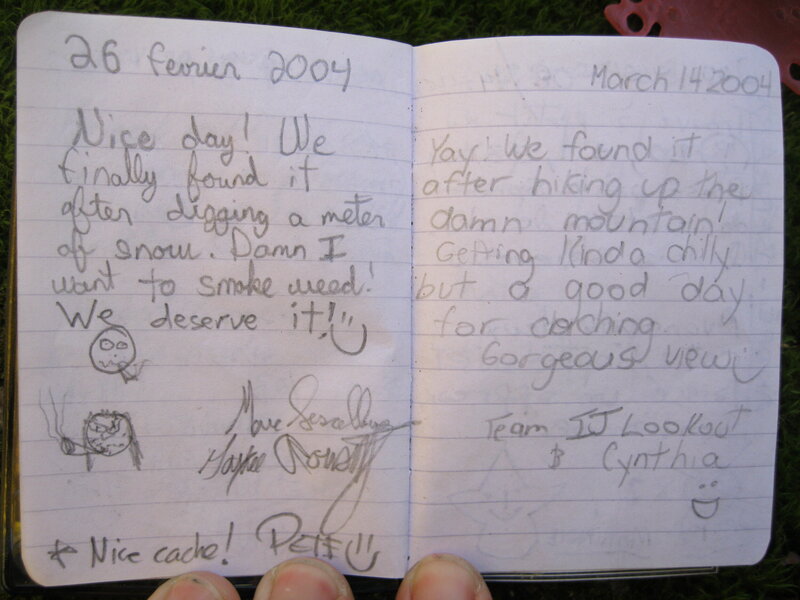 26 fevrier 2004
Nice day! We
finally found it
after digging a meter
of snow. Damn I
want to smoke weed!
We deserve it!!
Marc
* Nice cache! PETE
March 14 2004
Yay! We found it
after hiking up the
damn mountain!
Getting kinda chilly
but a good day
for caching
Gorgeous view
Team IJ Lookout
& Cynthia